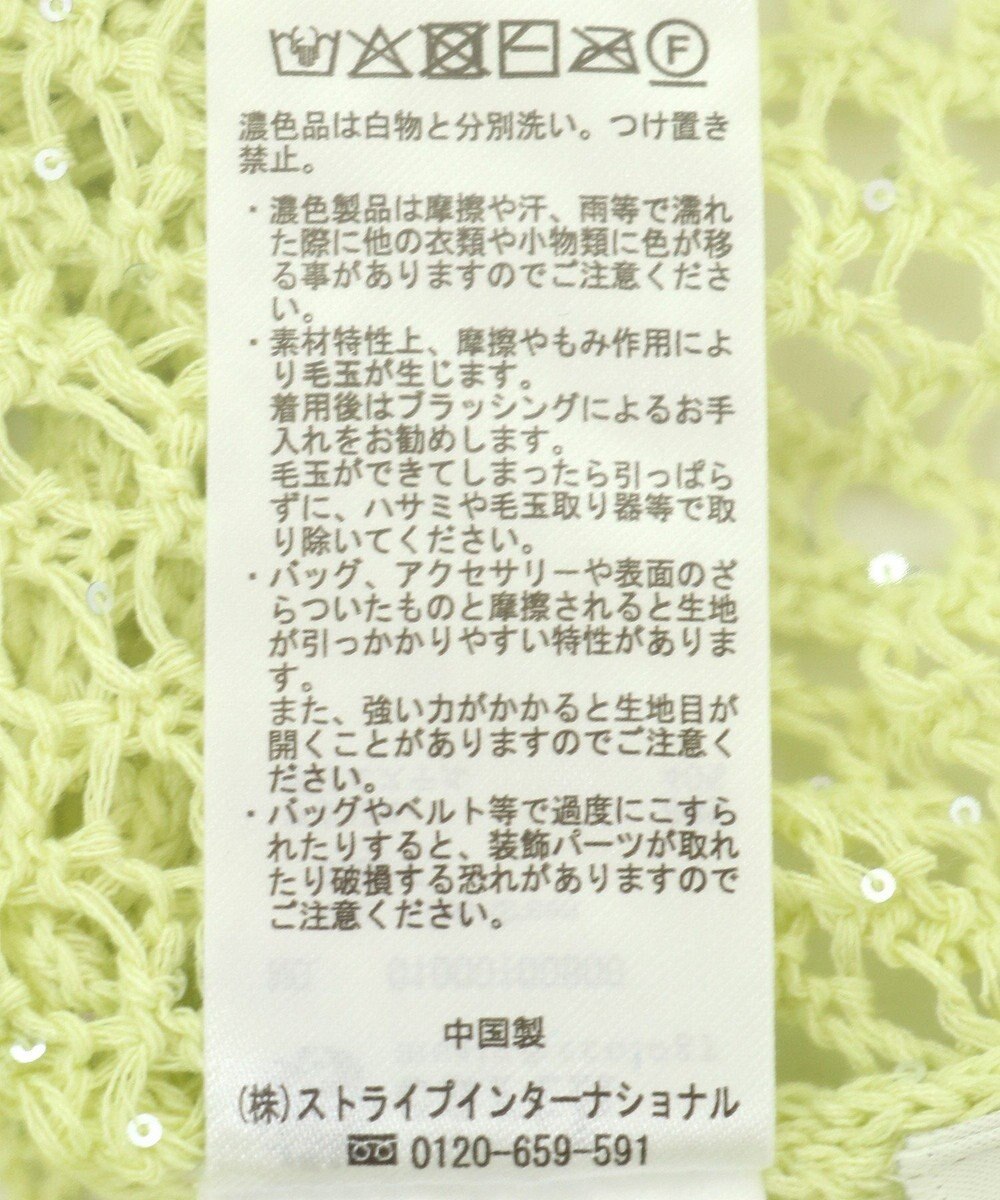 F
濃色品は白物と分別洗い。つけ置き
禁止。
・濃色製品は摩擦や汗、雨等で濡れ
た際に他の衣類や小物類に色が移
る事がありますのでご注意くださ
い。
・素材特性上、摩擦やもみ作用によ
り毛玉が生じます。
着用後はブラッシングによるお手
入れをお勧めします。
毛玉ができてしまったら引っぱら
ずに、ハサミや毛玉取り器等で取
り除いてください。
・バッグ、アクセサリーや表面のざ
らついたものと摩擦されると生地
が引っかかりやすい特性がありま
す。
また、強い力がかかると生地目が
開くことがありますのでご注意く
ださい。
・バッグやベルト等で過度にこすら
れたりすると、装飾パーツが取れ
たり破損する恐れがありますので
ご注意ください。
中国製
(株)ストライプインターナショナル
0120-659-591